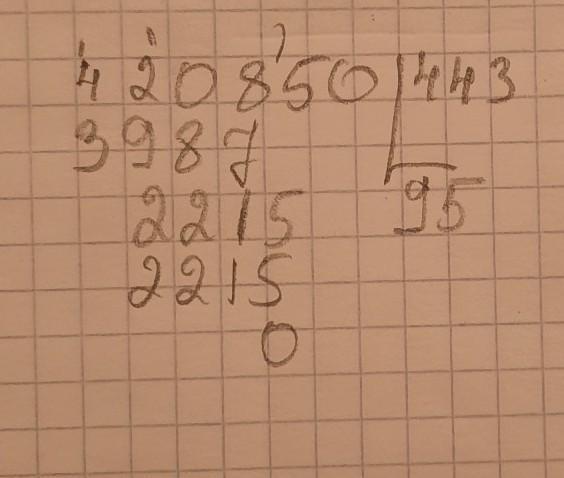 420850 443
3987 95
2215
2215
0